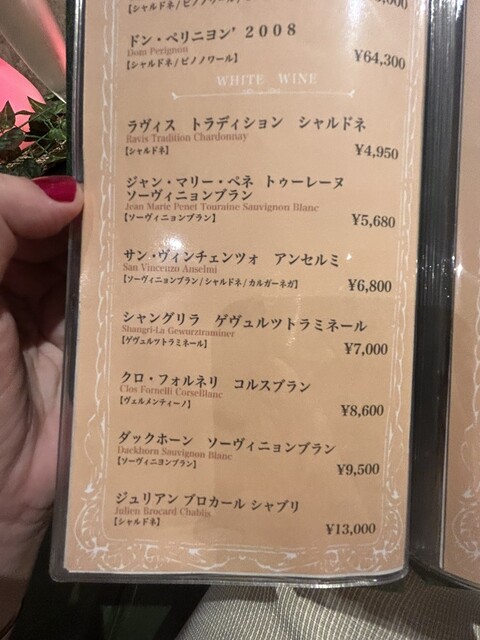 ドン・ペリニヨン' 2008
Dom Perignon
【シャルドネ/ピノノワール】
¥64,300
WHITE WINE
ラヴィス トラディション シャルドネ
Ravis Tradition Chardonnay
【シャルドネ】
¥4,950
ジャン・マリー・ペネ トゥーレーヌ
ソーヴィニョンブラン
Jean Marie Penet Touraine Sauvignon Blanc
【ソーヴィニョンブラン】
¥5,680
サン・ヴィンチェンツォ アンセルミ
San Vincenzo Anselmi
【ソーヴィニョンブラン/シャルドネ/カルガーネガ】
¥6,800
シャングリラ ゲヴュルツトラミネール
Shangri-La Gewurztraminer
【ゲヴュルツトラミネール】
¥7,000
クロ・フォルネリ コルスブラン
Clos Fornelli CorseBlanc
【ヴェルメンティーノ】
¥8,600
ダックホーン ソーヴィニョンブラン
Duckhorn Sauvignon Blanc
【ソーヴィニヨンブラン】
¥9,500
ジュリアン ブロカール シャブリ
Julien Brocard Chablis
【シャルドネ】
¥13,000